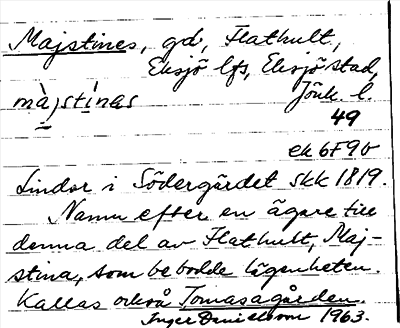 Majstines, gd, Flathult,
Eksjö lfs, Eksjö stad,
màjstìnas Jönk. l.
49
ek 6F9b
Lindor i Södergärdet skk 1819.
Namn efter en ägare till
denna del av Flathult, Maj-
stina, som bebodde lägenheten.
Kallas också Tomasagården.
Inger Danielsson 1963.